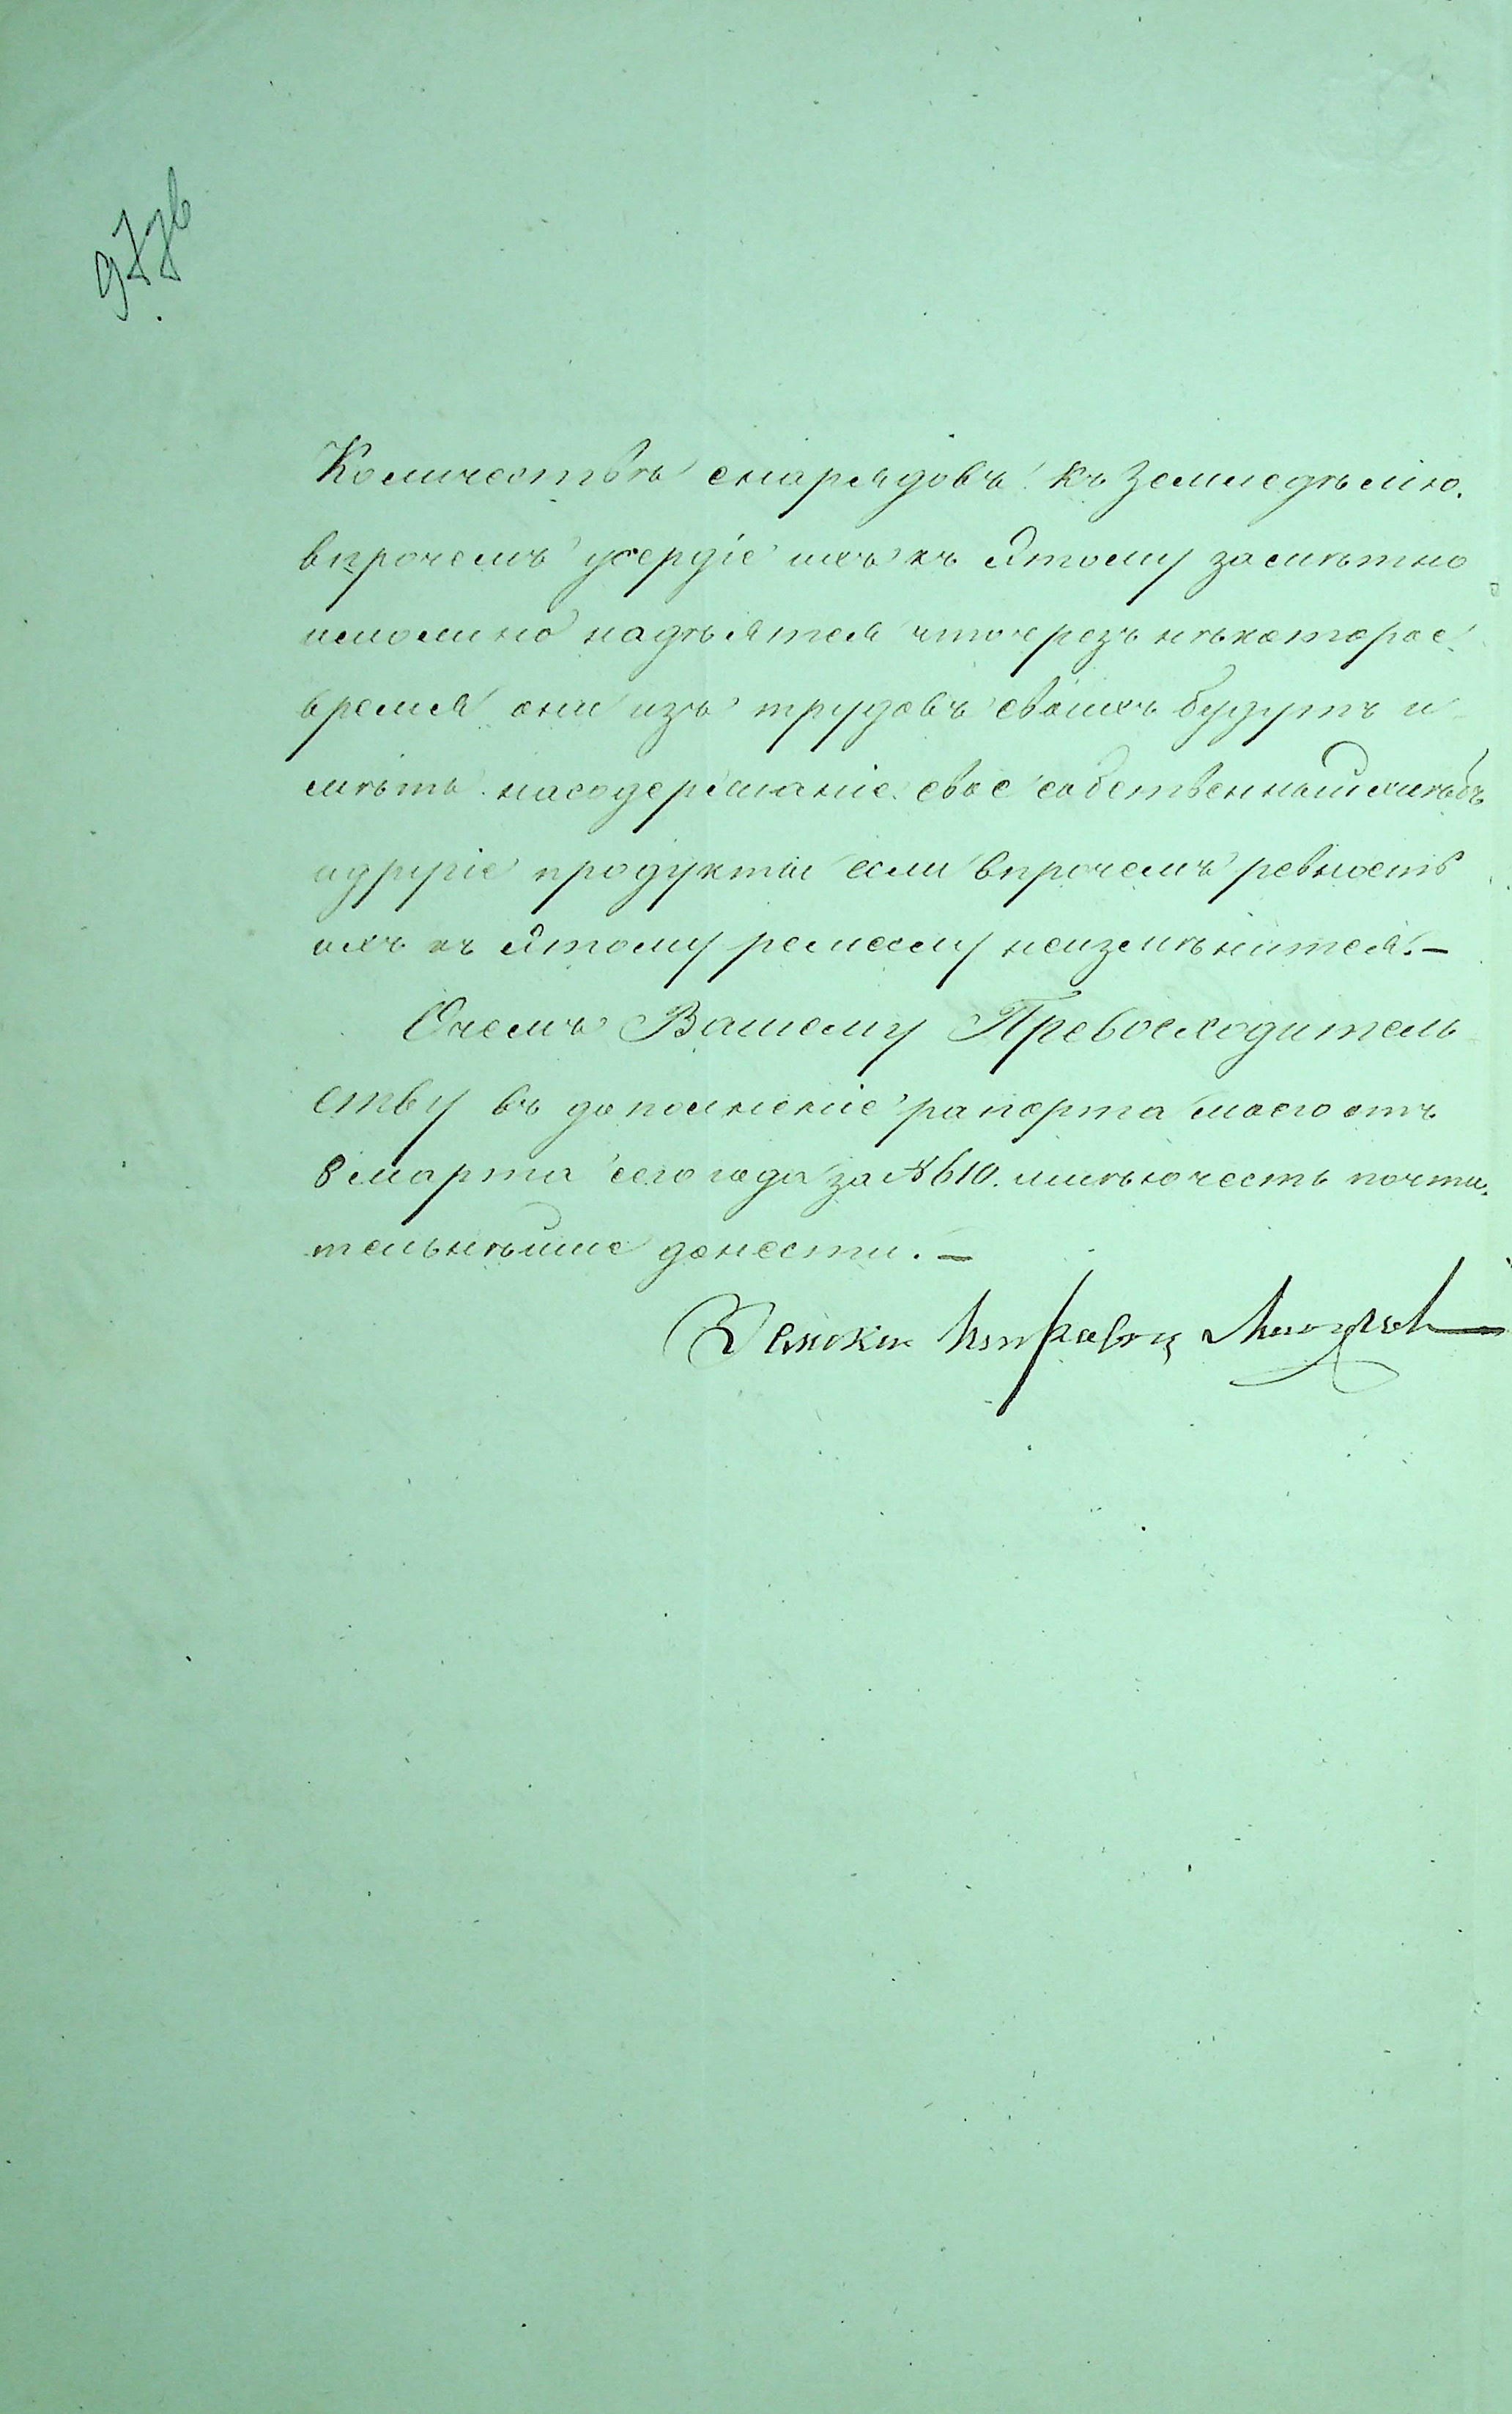 Количествѣ снарядовъ къ Земледѣлію.
впрочемъ усердіе ихъ къ Этому замѣтно
иможно надѣятся чточрезъ нѣкоторое
время они изъ трудовъ своихъ будутъ и
мѣть насодержаніе свое собственный хлѣбъ
идругіе продукты если впрочемъ ревность
ихъ къ Этому ремеслу неизмѣнится. —
Очемъ Вашему Превосходитель
ству въ дополненіе рапорта моего отъ
8 марта сего года за № 610. имѣю честь почти
тельнѣйше донести. —